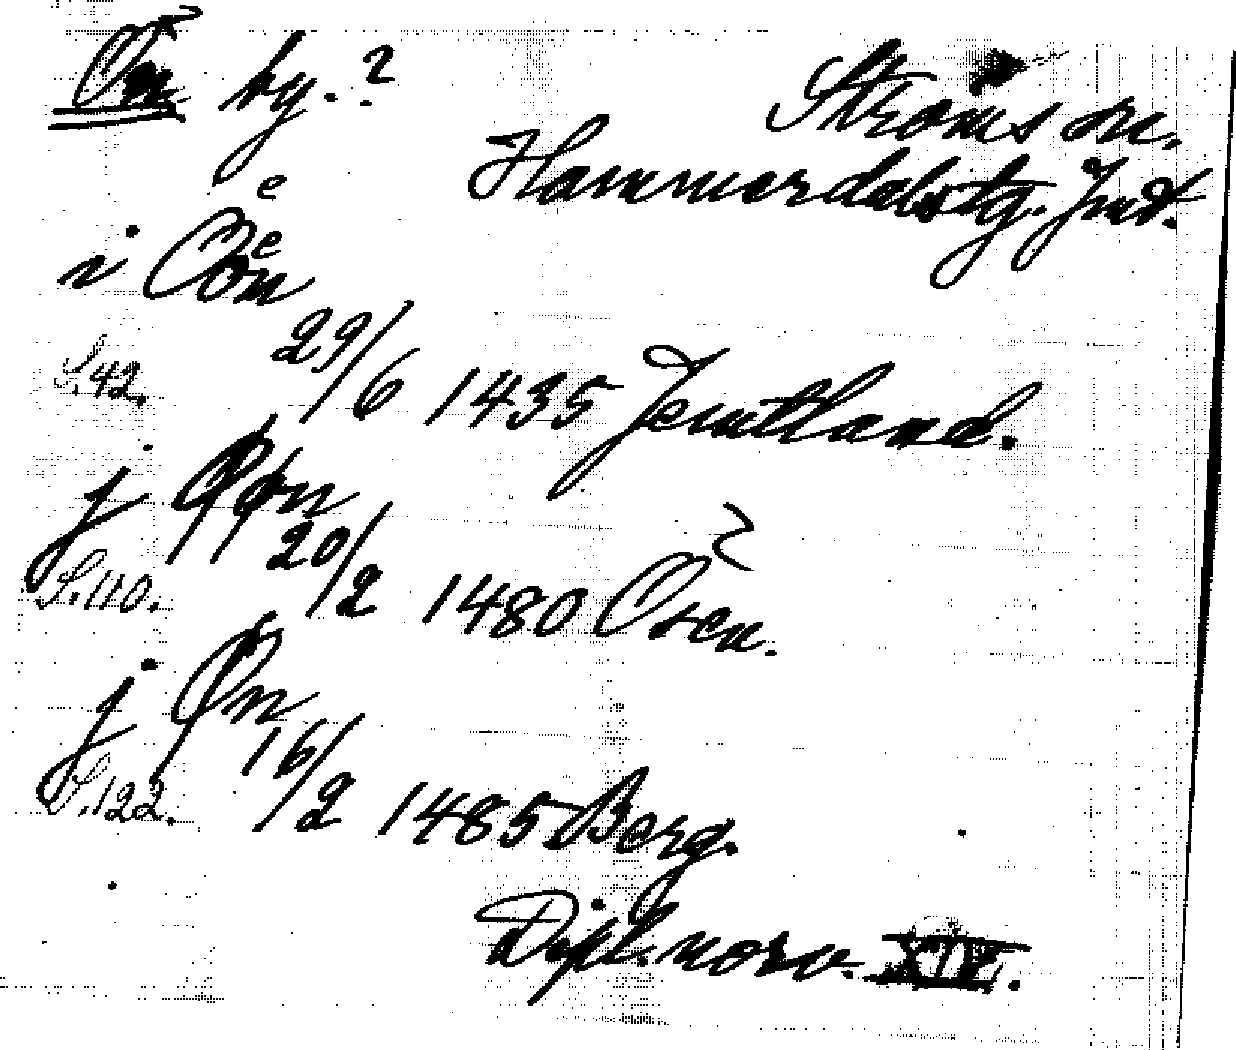 Ön by.?
Ströms sn.
Hammerdalstg. Jmt.
i Öön
29/6 1435 Jemtland.
S.42.
j Øøn
20/2 1480 Osen.
S.110.
j Øn
16/2 1485 Berg.
S.122.
Dipl. norv. XIV.